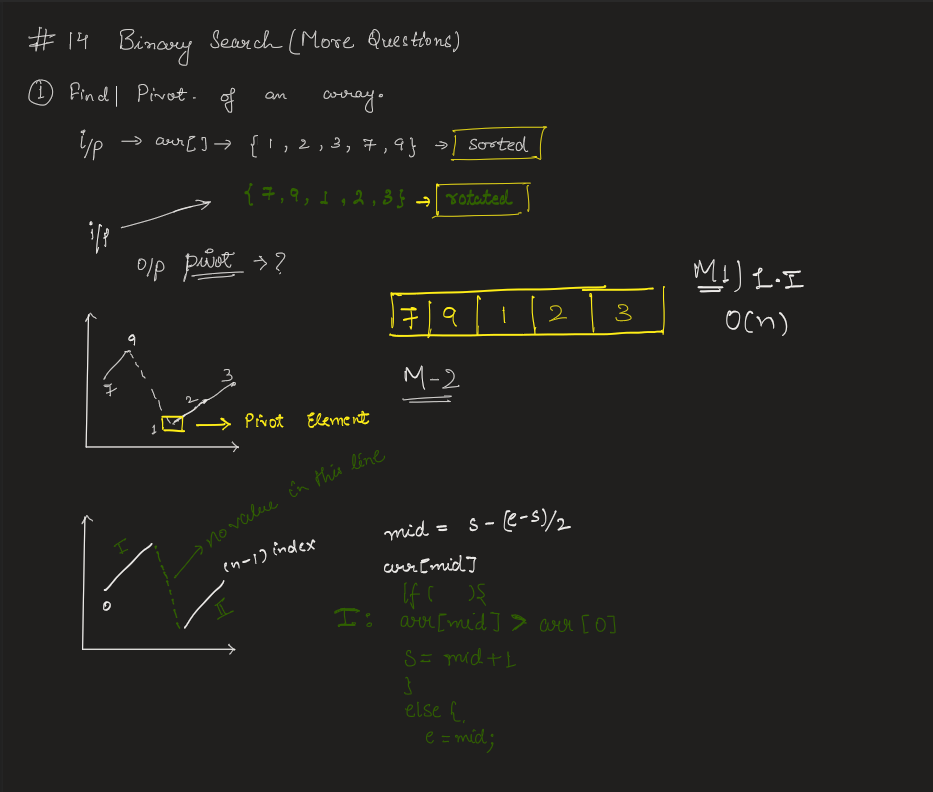 # 14 Binary Search (More Questions)
① Find | Pivot. of an array.
i/p → arr[] → { 1, 2, 3, 7, 9} → sorted
{ 7, 9, 1, 2, 3} → rotated
i/p
o/p pivot → ?
M1) L.I
O(n)
7 9 1 2 3
M-2
9
7
3
2
1
→ Pivot Element
no value in this line
I
(n-1) index
0
II
mid = s - (e-s)/2
arr[mid]
If ( ){
I: arr[mid] > arr [0]
s = mid+1
}
else {
e = mid;